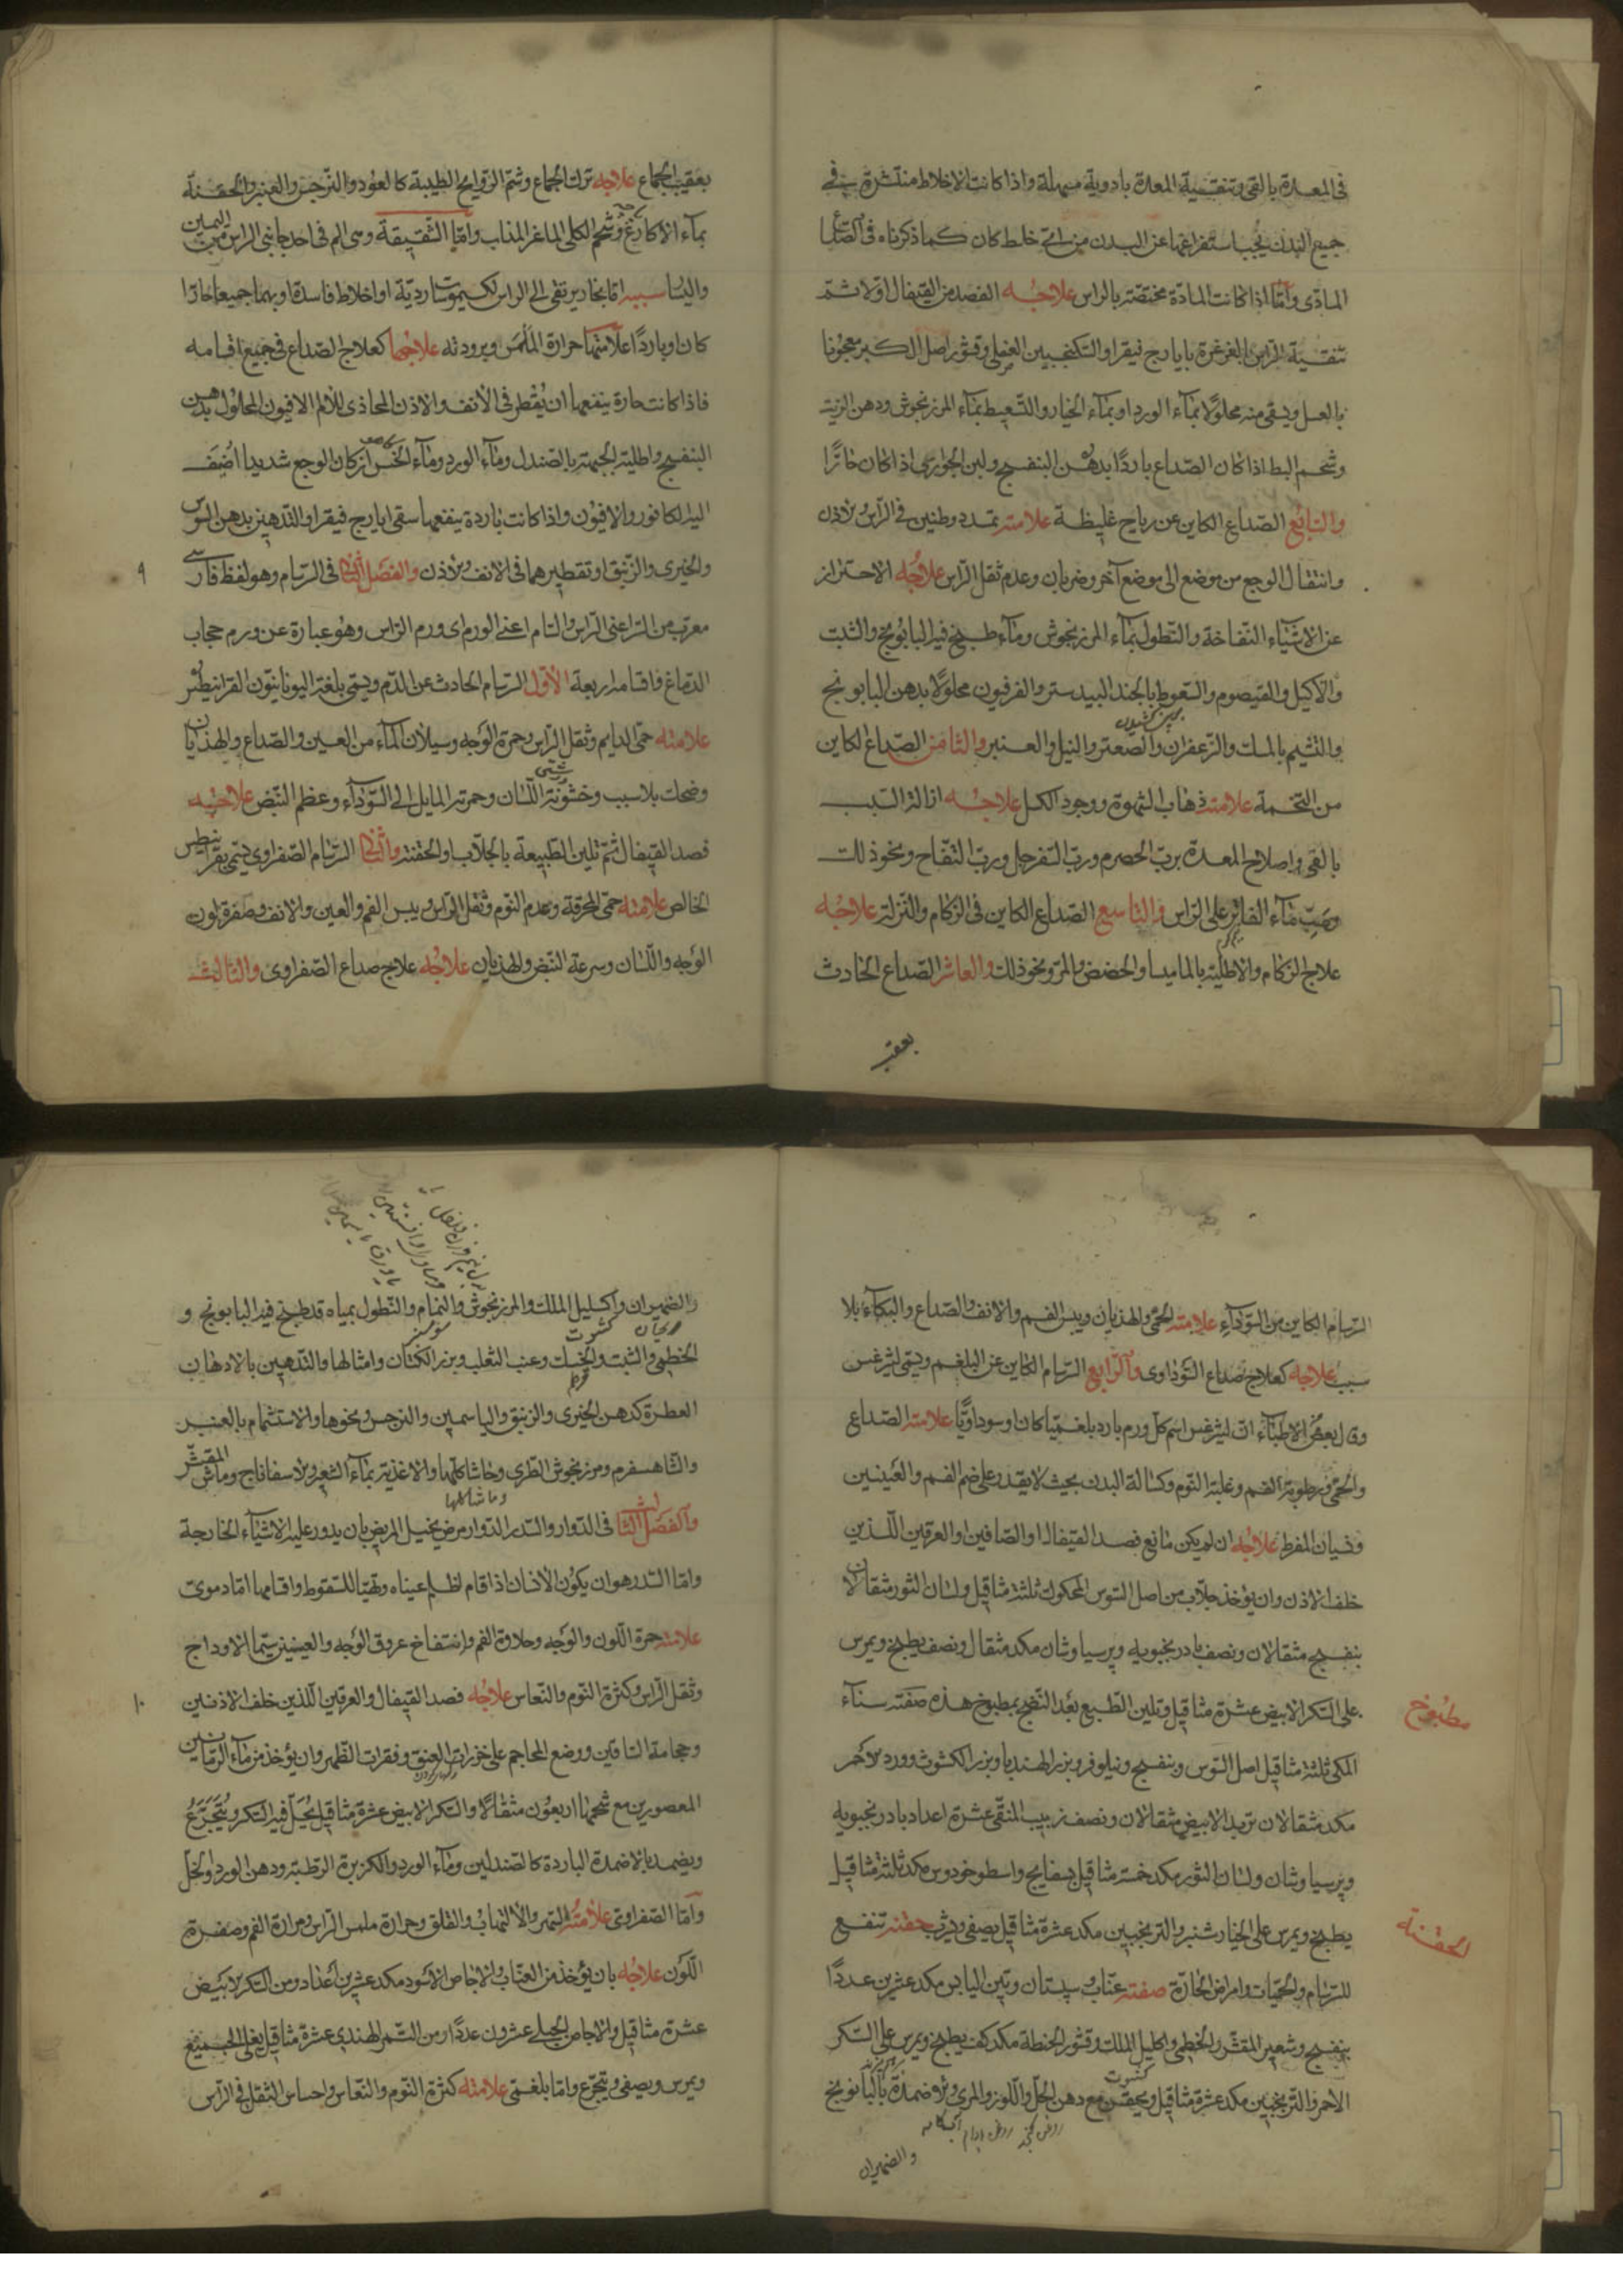 فى المعدة بالقى وتنقية المعدة بادوية مسهلة واذا كانت الاخلاط منتشرة فى
جميع البدن يجب استفراغها عن البدن من اىّ خلط كان كما ذكرناه فى الصّداع
المادّى وامّا اذا كانت المادّة مختصّة بالراس علاجُه الفصد من القيفال اوّلا ثمّ
تنقية الراس بالغرغرة بايارج فيقرا والسّكنجبين العنصلى وقشور اصل الكبر معجونا
بالعسل ويسقى منه محلولًا بمآء الورد او بمآء الخيار والتّسعيط بمآء المرزنجوش ودهن الزيت
وشحم البط اذا كان الصّداع باردًا بدهن البنفسج ولبن الجوارى اذا كان حارًّا
والسّابع الصّداع الكاين عن رياح غليظة علامته تمدد وطنين فى الرّاس والاذن
وانتقال الوجع من موضع الى موضع آخر وضربان وعدم ثقل الرّاس علاجُه الاحتراز
عن الاشيآء النّفاخة والنّطول بمآء المرزنجوش ومآء طبيخ فيه البابونج والشبت
والاكليل والقيصوم والسّعوط بالجند البيدستر والفرفيون محلولًا بدهن البابونج
والتشميم بالمسك والزّعفران والصّعتر والنيل والعنبر والثامن الصّداع الكاين
من التخمة علامته ذهاب الشهوة ووجود الكسل علاجُه ازالة السّبب
بالقى واصلاح المعدة بربّ الحصرم وربّ السّفرجل وربّ التفّاح ونحو ذلك
وصبّ مآء الفاتر على الرّاس والتاسع الصّداع الكاين فى الزكام والنّزلة علاجُه
علاج الزكام والاطلية بالماميسا والحضض والمرّ ونحو ذلك والعاشر الصّداع الحادث
بعقيب
بعقيب الجماع علاجه ترك الجماع وشمّ الرّوايح الطيبة كالعود والنّرجس والعنبر والحقنة
بمآء الاكارع وشحم الكلى الماعز المذاب وامّا الشّقيقة وهى الم فى احد جانبى الراس من اليمين
واليسار سببه امّا بخار يرتقى الى الراس لكيموسات رديّة او اخلاط فاسدة او بهما جميعا حارّا
كان او باردًا علامتها حرارة الملمس وبرودته علاجُها كعلاج الصّداع فى جميع اقسامه
فاذا كانت حارة ينفعها ان يُقطر فى الانف والاذن المحاذى للالم الافيون المحلول بدهن
البنفسج واطلية الجبهة بالصّندل ومآء الورد ومآء الخسّ ان كان الوجع شديدا اضيف
اليه الكافور والافيون واذا كانت باردة ينفعها سقى ايارج فيقرا والتدهين بدهن السّوسن
والخيرى والزّنبق او تقطيرهما فى الانف والاذن والفصل الثانى فى السّرسام وهو لفظ فارسى
معرّب من السّر اعنى الرّاس والسّام اعنى الورم اى ورم الرّاس وهو عبارة عن ورم حجاب
الدّماغ واقسامه اربعة الاوّل السّرسام الحادث عن الدّم ويسمّى بلغة اليونانيّون القرانيطس
علامته حمّى الدايم وثقل الرّاس وحمرة الوجه وسيلان المآء من العين والصّداع والهذيان
وضحك بلا سبب وخشونة اللّسان وحمرته المايل الى السّوداء وعظم النّبض علاجُه
فصد القيفال ثمّ تليين الطّبيعة بالجلاّب والحقنة والثانى السّرسام الصّفراوى يسمّى بقرانيطس
الخالص علامته حمّى المحرقة وعدم النّوم وثقل الرّاس ويبس الفم والعين والانف وصفرة لون
الوجه واللّسان وسرعة النّبض والهذيان علاجُه علاج صداع الصّفراوى والثالث
٩
السّرسام الكاين من السّودآء علامته الحمّى والهذيان ويبس الفم والانف والصّداع والبكآء بلا
سبب علاجه كعلاج صداع السّوداوى والرّابع السّرسام الكاين عن البلغم ويسمّى ليثرغس
وقال بعض الاطبّاء انّ ليثرغس اسم كلّ ورم بارد بلغميّا كان او سوداويًّا علامته الصّداع
والحمّى ورطوبة الفم وغلبة النّوم وكسالة البدن بحيث لا يقدر على ضم الفم والعينين
ونسيان المفرط علاجُه ان لم يكن مانع فصد القيفال او الصّافين او العرقين اللّذين
خلف الاذن وان يؤخذ جلّاب من اصل السّوس المحكوك ثلثة مثاقيل ولسان الثور مثقالان
بنفسج مثقالان ونصف بادرنجبويه وپرسياوشان مكد مثقال ونصف يطبخ ويمرس
على السّكر الابيض عشرة مثاقيل وتليين الطّبع بعد النّضج بمطبوخ هذه صفته سنآء
مطبوخ
المكى ثلثة مثاقيل اصل السّوس وبنفسج ونيلوفر وبزر الهندبا وبزر الكشوث وورد الاحمر
مكد مثقالان تربد الابيض مثقالان ونصف زبيب المنقّى عشرة اعداد بادرنجبويه
وپرسياوشان ولسان الثور مكد خمسة مثاقيل بسفايج واسطوخودوس مكد ثلثة مثاقيل
يطبخ ويمرس على الخيارشنبر والترنجبين مكد عشرة مثاقيل يصفى ويشرب حقنة تنفع
الحقنة
للسّرسام والحمّيات وامراض الحارّة صفته عنّاب وسپستان وتين اليابس مكد عشرين عددًا
بنفسج وشعير المقشّر والخطمى واكليل الملك وقشور الحنطة مكد كف يطبخ ويمرس على السّكر
الاحمر والترنجبين مكد عشرة مثاقيل ويحقن مع دهن الخلّ واللّوز والمرى وضمدة بالبابونج
روغن كنجد روغن بادام آبكامه
والضميران
والضميران واكليل الملك والمرزنجوش والنمام والنّطول بمياه قد طبخ فيه البابونج و
الخطمى والشبت والخسك وعنب الثعلب وبزر الكتان وامثالها والتّدهين بالادهان
العطرة كدهن الخيرى والزنبق والياسمين والنرجس ونحوها والاستشمام بالعنبر
والشاهسفرم ومرزنجوش الطرى وحاشا كلّها والاغذية بمآء الشعير والاسفاناج وماش المقشّر
وما شاكلها
والفصل الثالث فى الدّوار والسّدر الدّوار مرض يخيل المريض بان يدور عليه الاشيآء الخارجة
وامّا السّدر هو ان يكون الانسان اذا قام اظلم عيناه وتهيّا للسّقوط واقسامها امّا دموىّ
علامته حمرة اللّون والوجه وحلاوة الفم وانتفاخ عروق الوجه والعينين سيّما الاوداج
وثقل الرّاس وكثرة النّوم والنّعاس علاجُه فصد القيفال والعرقين اللّذين خلف الاذنين
١٠
وحجامة السّاقين ووضع المحاجم على خرزات العنق وفقرات الظّهر وان يؤخذ من مآء الرمّانين
المعصورين مع شحمها اربعون مثقالًا والسّكر الابيض عشرة مثاقيل يُحلّ فيه السّكر ويُتجرّع
ويضمد بالاضمدة الباردة كالصّندلين ومآء الورد والكزبرة الرّطبة ودهن الورد والخلّ
وامّا الصّفراوىّ علامتُه السّهر والالتهاب والقلق وحرارة ملمس الرّاس ومرارة الفم وصفرة
اللّون علاجُه بان يؤخذ من العنّاب والاجاص الاسود مكد عشرين اعداد ومن السّكر الابيض
عشرة مثاقيل والاجاص الجبلى عشرون عددًا ومن التّمر الهندى عشرة مثاقيل يغلى الجميع
ويمرس ويصفى ويتجرّع وامّا بلغمىّ علامته كثرة النّوم والنّعاس واحساس الثقل فى الرّاس